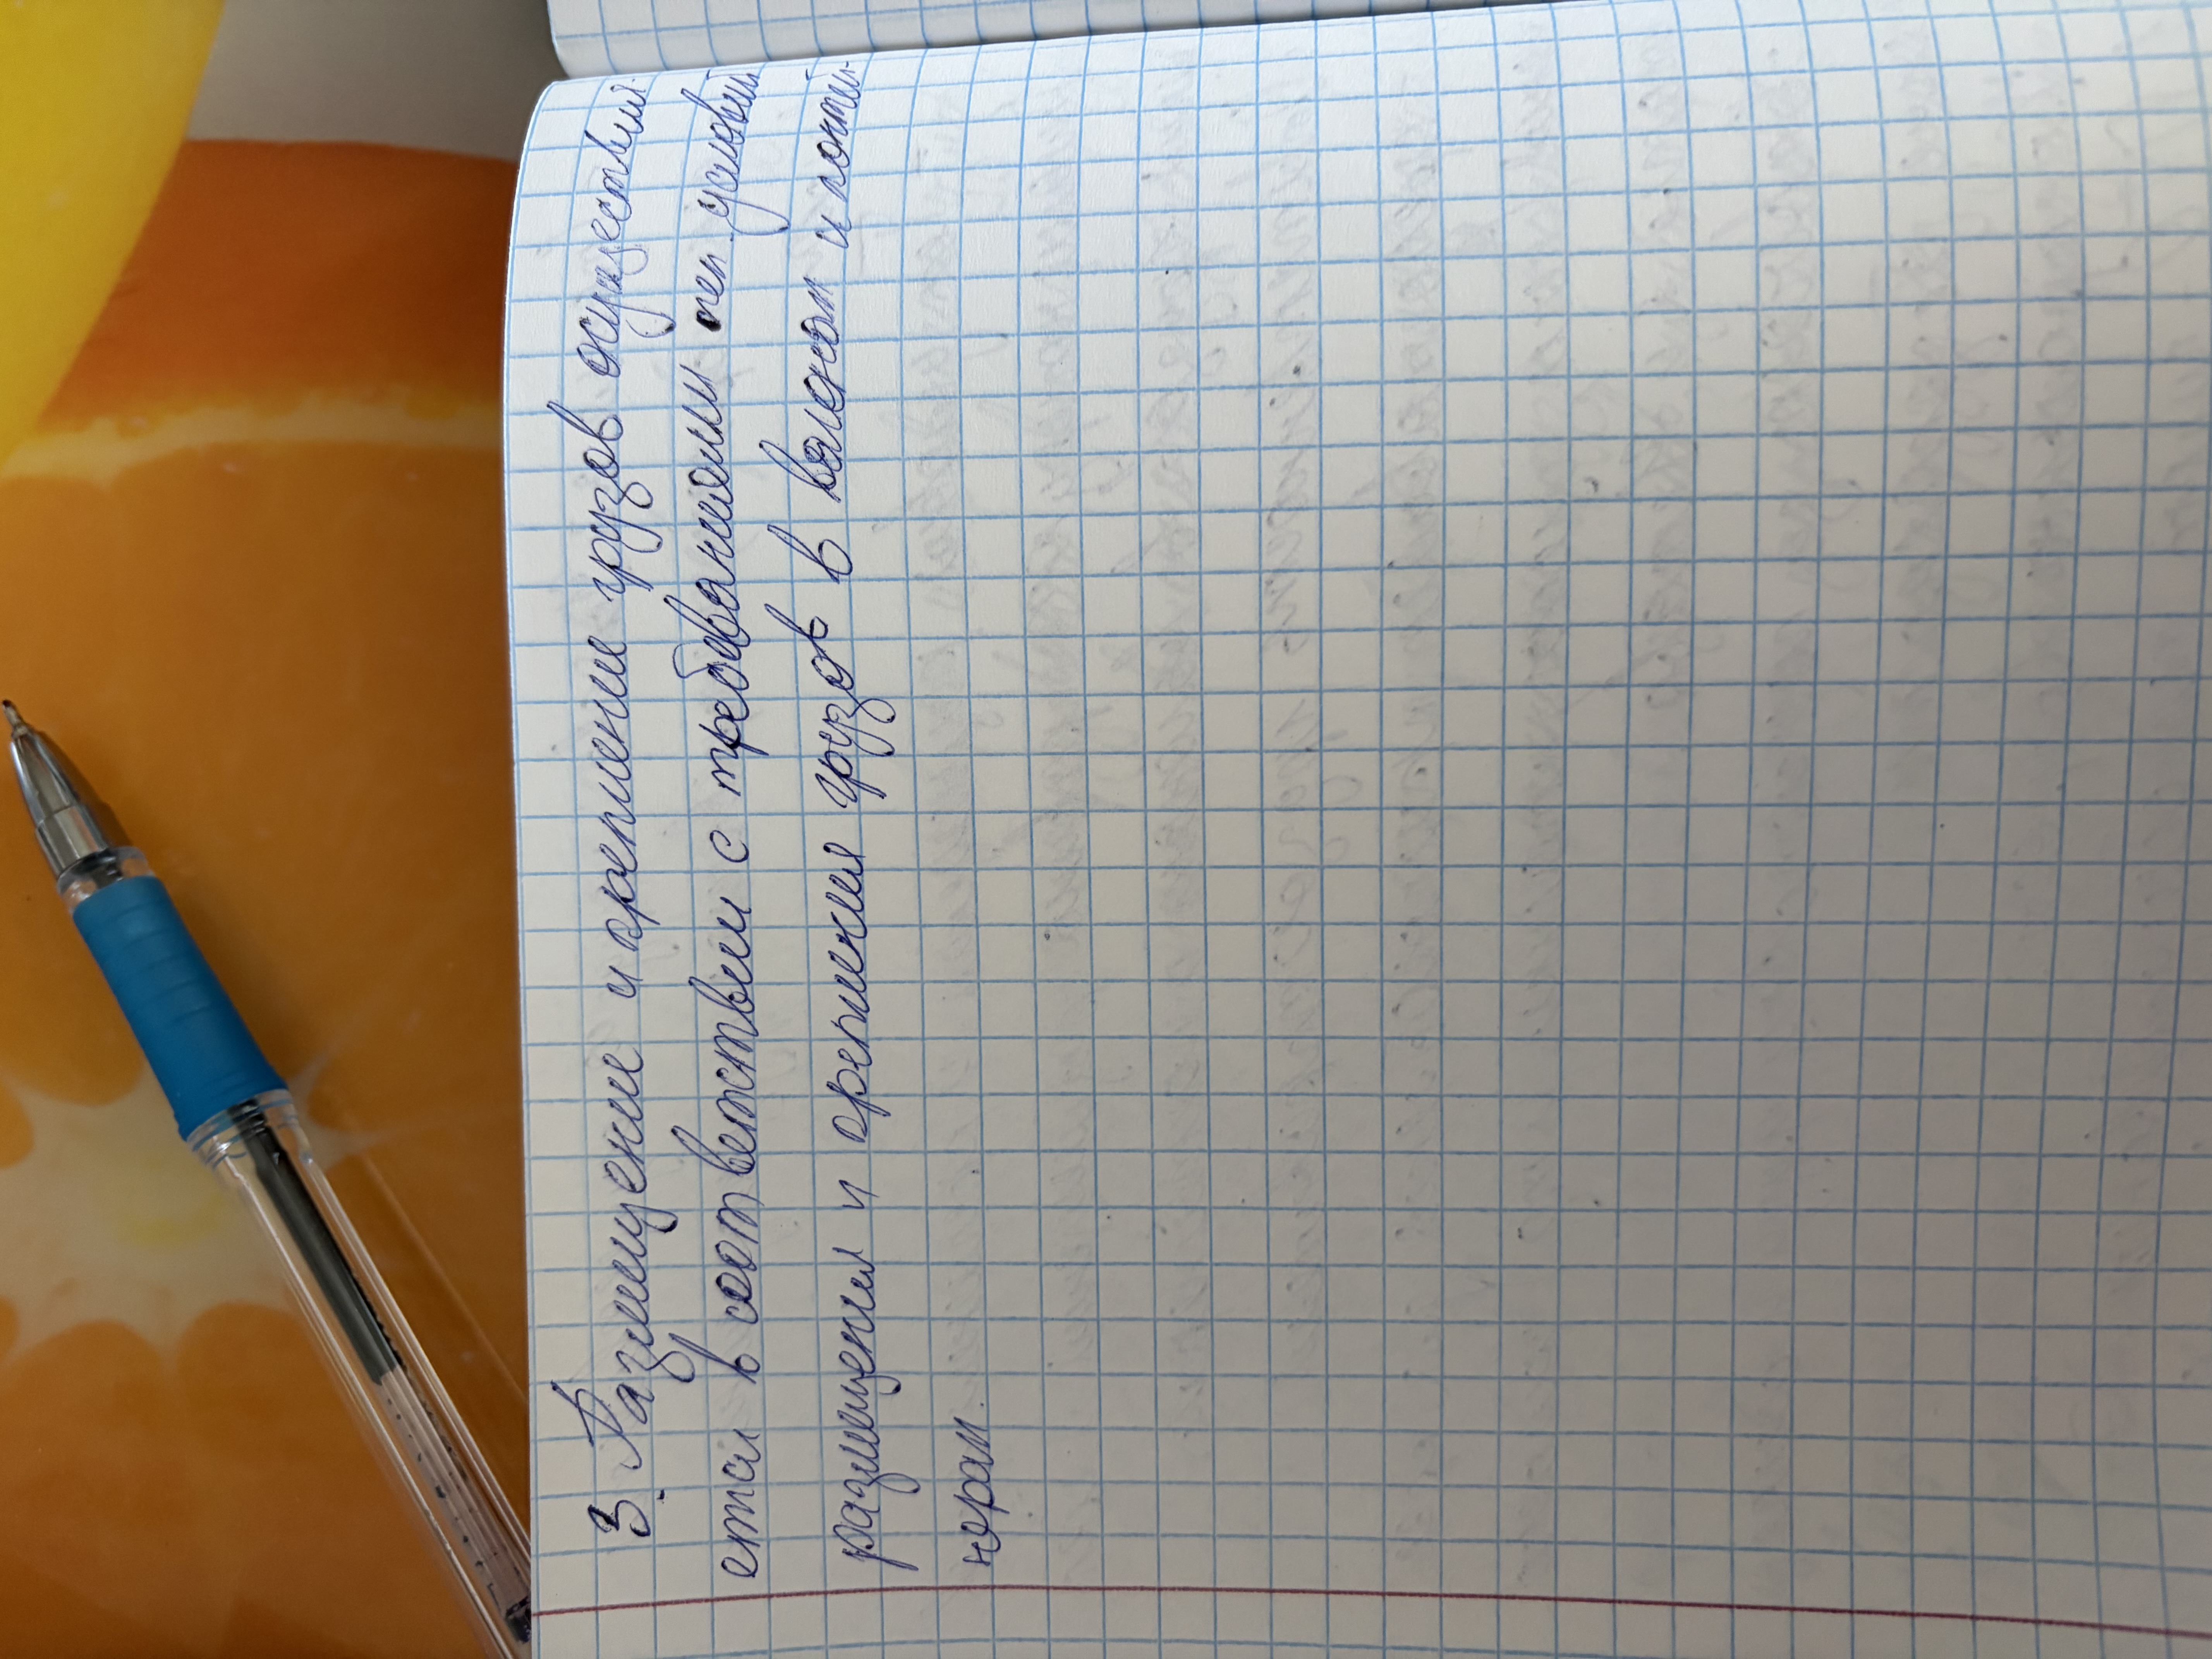 3. Размещение и крепление грузов осуществля-
ется в соответствии с требованиями тех. условий
размещения и крепления грузов в вагонах и контей-
нерах.